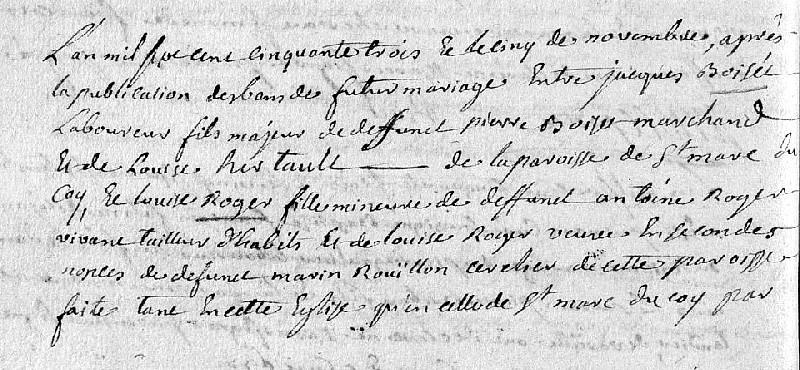 L'an mil sept cent cinquante trois Et le cinq de novembre, après
la publication desbans de futur mariage Entre jacques Boiset
Laboureur fils majeur de deffunct pierre Boiset marchand
Et de Louise hirtault — de la paroisse de St marc du
Coy, Et louise Roger fille mineure de deffunct antoine Roger
vivant tailleur d'habits Et de louise Roger veuve En secondes
nopces de defunct marin Roüillon cerclier de cette paroisse
faite tant En cette Eglise qu'en celle de St marc du coy par